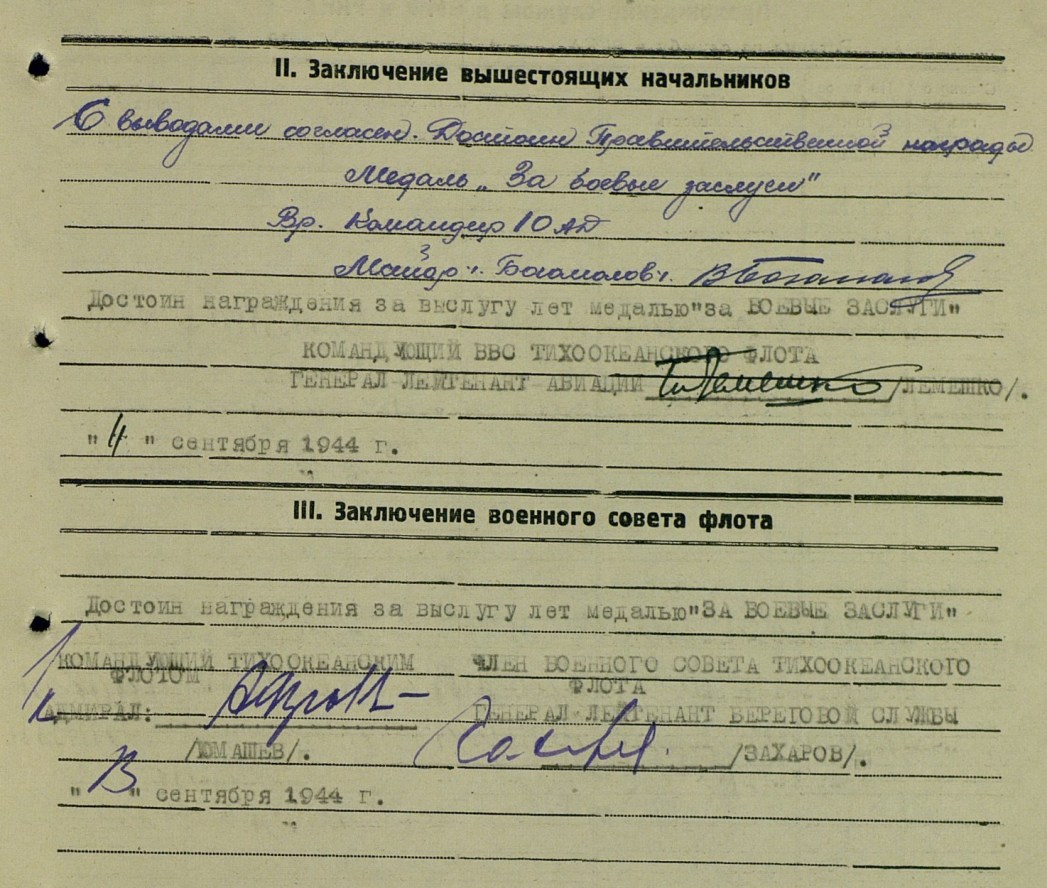 II. Заключение вышестоящих начальников
С выводами согласен. Достоин Правительственной награды
Медаль „За боевые заслуги"
Вр. Командир 10 АД
Майор Богомолов
Достоин награждения за выслугу лет медалью "за БОЕВЫЕ ЗАСЛУГИ"
КОМАНДУЮЩИЙ ВВС ТИХООКЕАНСКОГО ФЛОТА
ГЕНЕРАЛ ЛЕЙТЕНАНТ АВИАЦИИ /ЛЕМЕШКО/.
" 4 " сентября 1944 г.
III. Заключение военного совета флота
Достоин награждения за выслугу лет медалью "ЗА БОЕВЫЕ ЗАСЛУГИ"
КОМАНДУЮЩИЙ ТИХООКЕАНСКИМ
ФЛОТОМ
АДМИРАЛ:
/ЮМАШЕВ/.
ЧЛЕН ВОЕННОГО СОВЕТА ТИХООКЕАНСКОГО
ФЛОТА
ГЕНЕРАЛ-ЛЕЙТЕНАНТ БЕРЕГОВОЙ СЛУЖБЫ
/ЗАХАРОВ/.
" " сентября 1944 г.